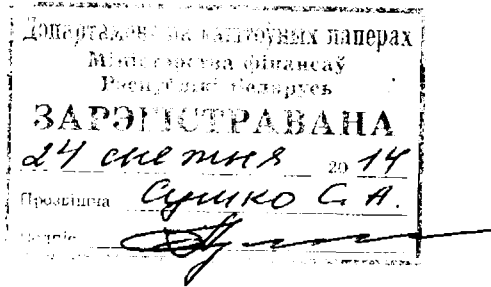 Дэпартамент па каштоўных паперах
Міністэрства фінансаў
Рэспублікі Беларусь
ЗАРЭГІСТРАВАНА
24 снежня 20 14
Прозвішча Сушко С. А.
Подпіс